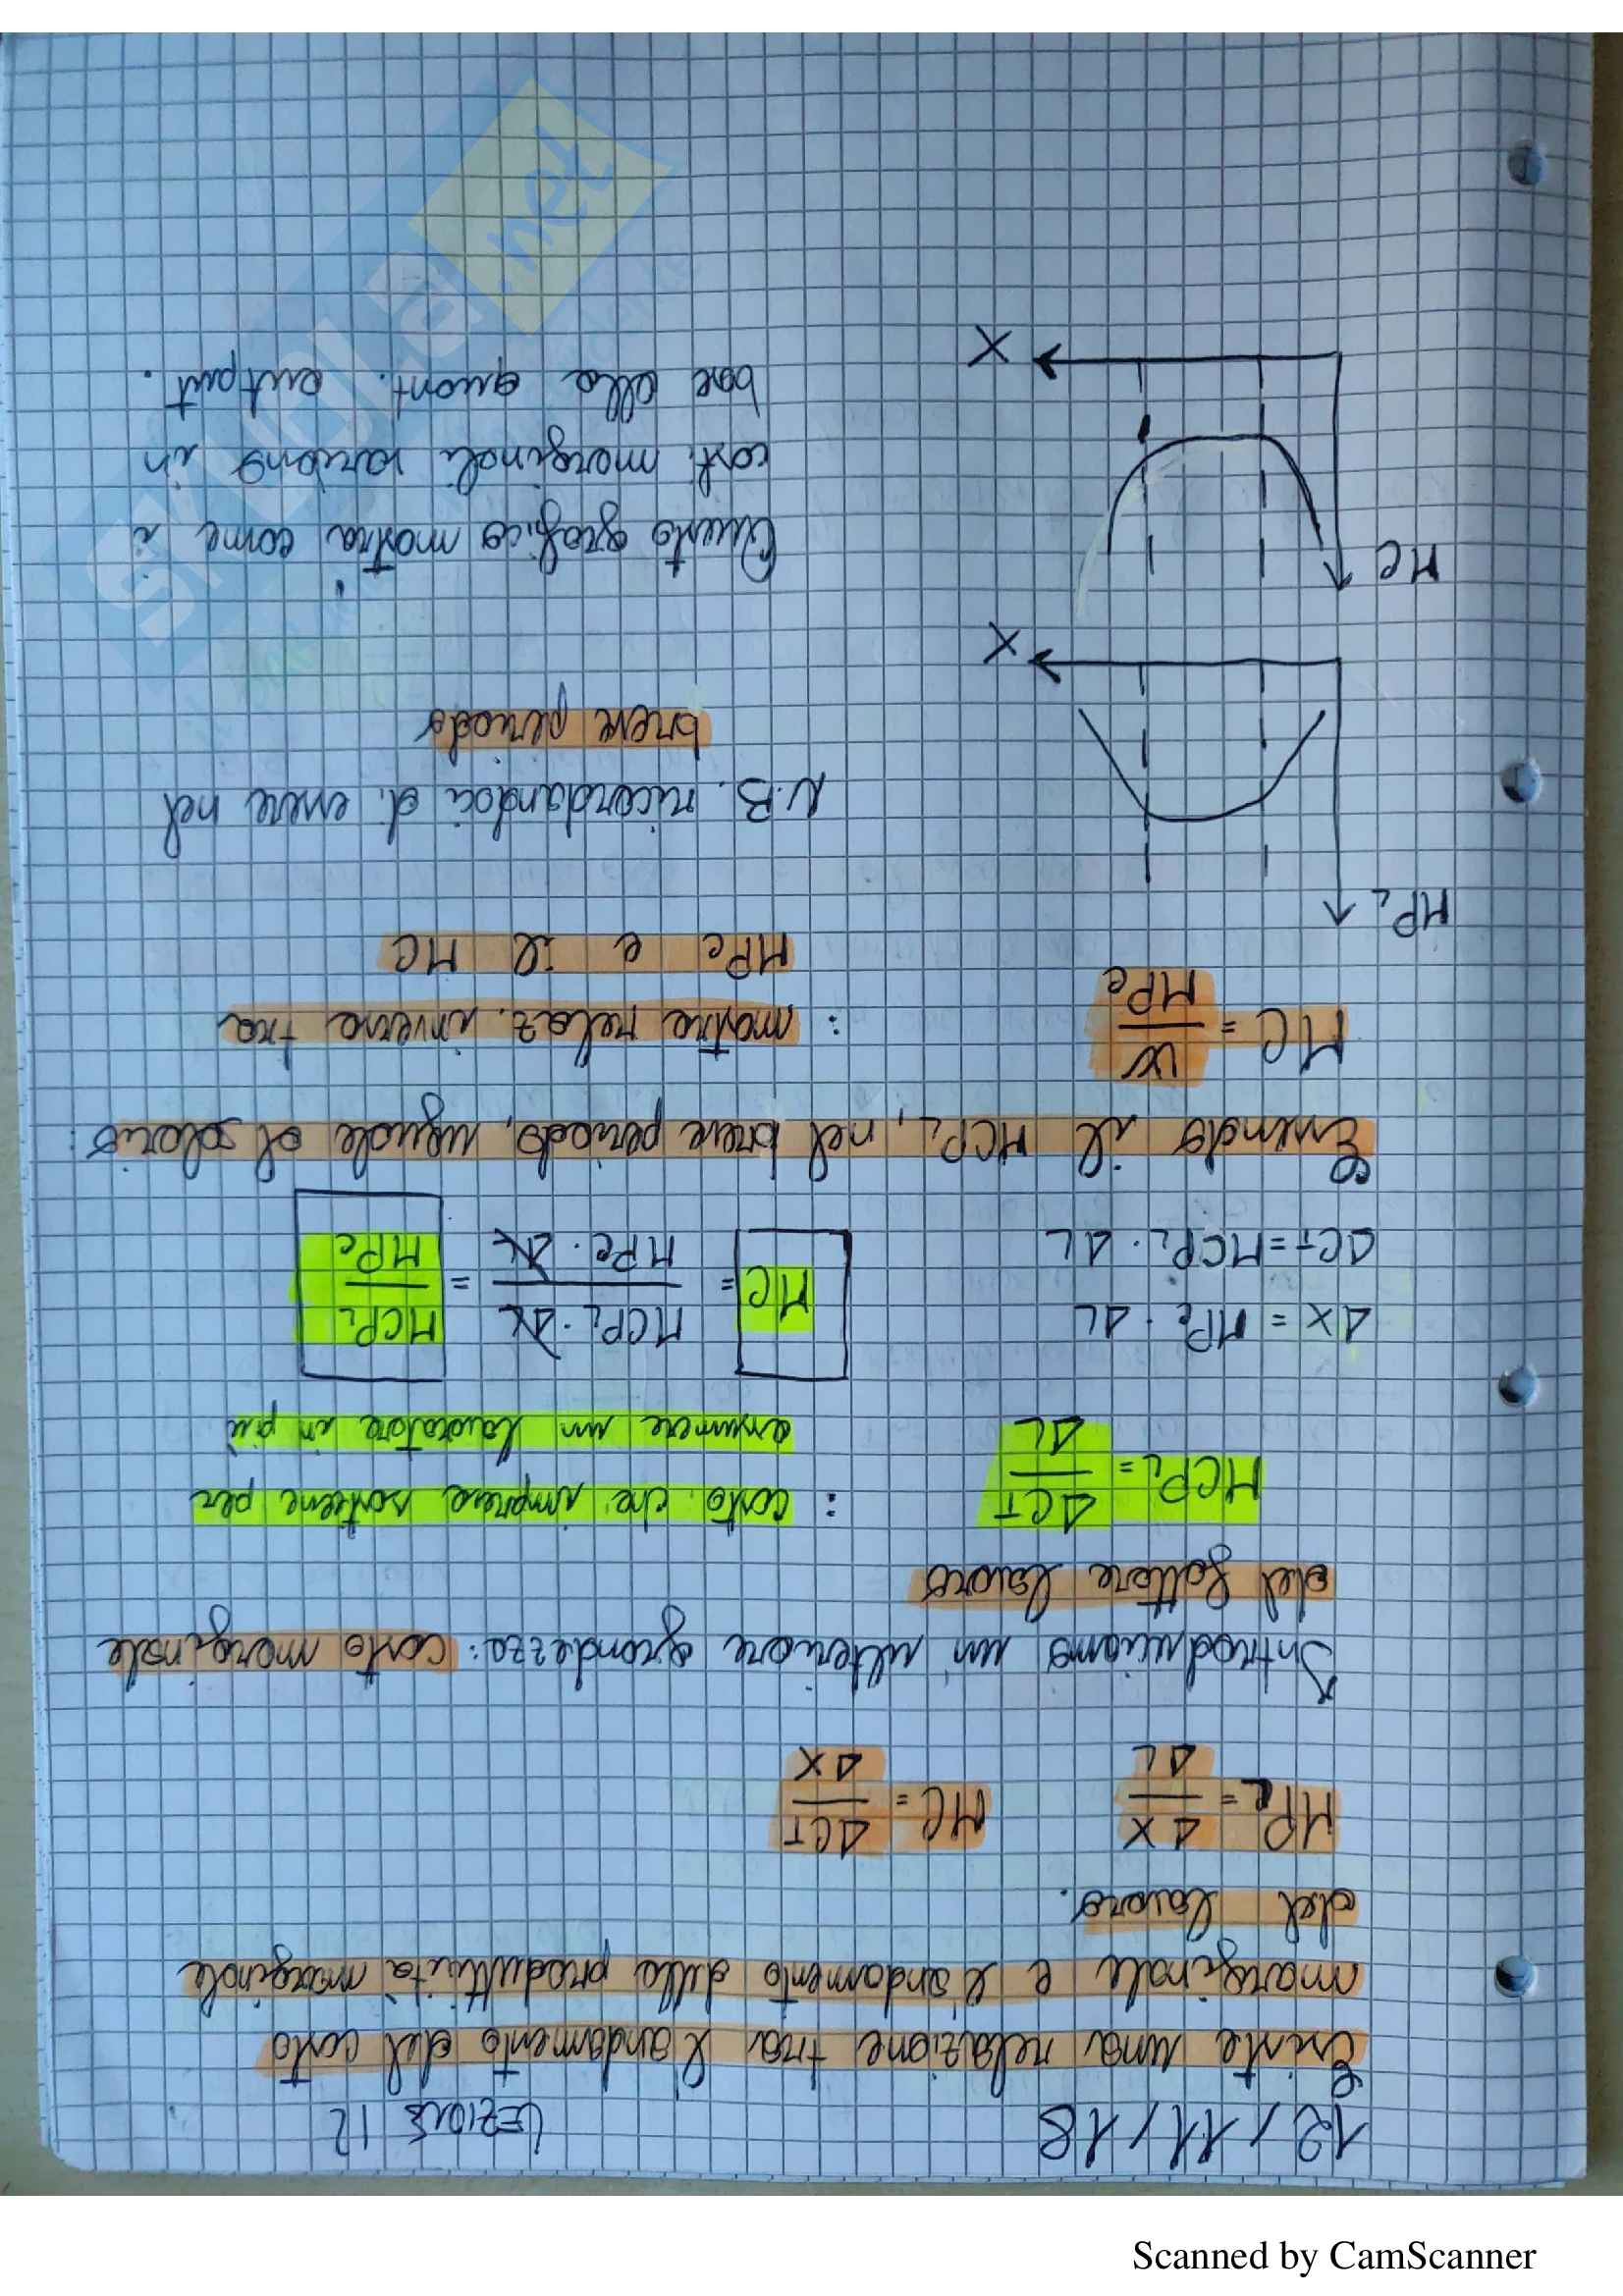 12/11/18 LEZIONE 12
Esiste una relazione tra l'andamento del costo
marginale e l'andamento della produttività marginale
del lavoro.
MPL = ΔX/ΔL MC = ΔCT/ΔX
Introduciamo un' ulteriore grandezza: costo marginale
del fattore lavoro
MCPL = ΔCT/ΔL : costo che impresa sostiene per
assumere un lavoratore in più
ΔX = MPL · ΔL
ΔCT = MCPL · ΔL MC = MCPL · ΔL / MPL · ΔL = MCPL/MPL
Essendo il MCPL, nel breve periodo, uguale al salario:
MC = W/MPL : mostra relaz. inversa tra
MPL e il MC
MPL
N.B. ricordandoci di essere nel
breve periodo
X
MC
Questo grafico mostra come i
costi marginali variano in
base alla quant. output.
X
SKUOLA.net
Scanned by CamScanner